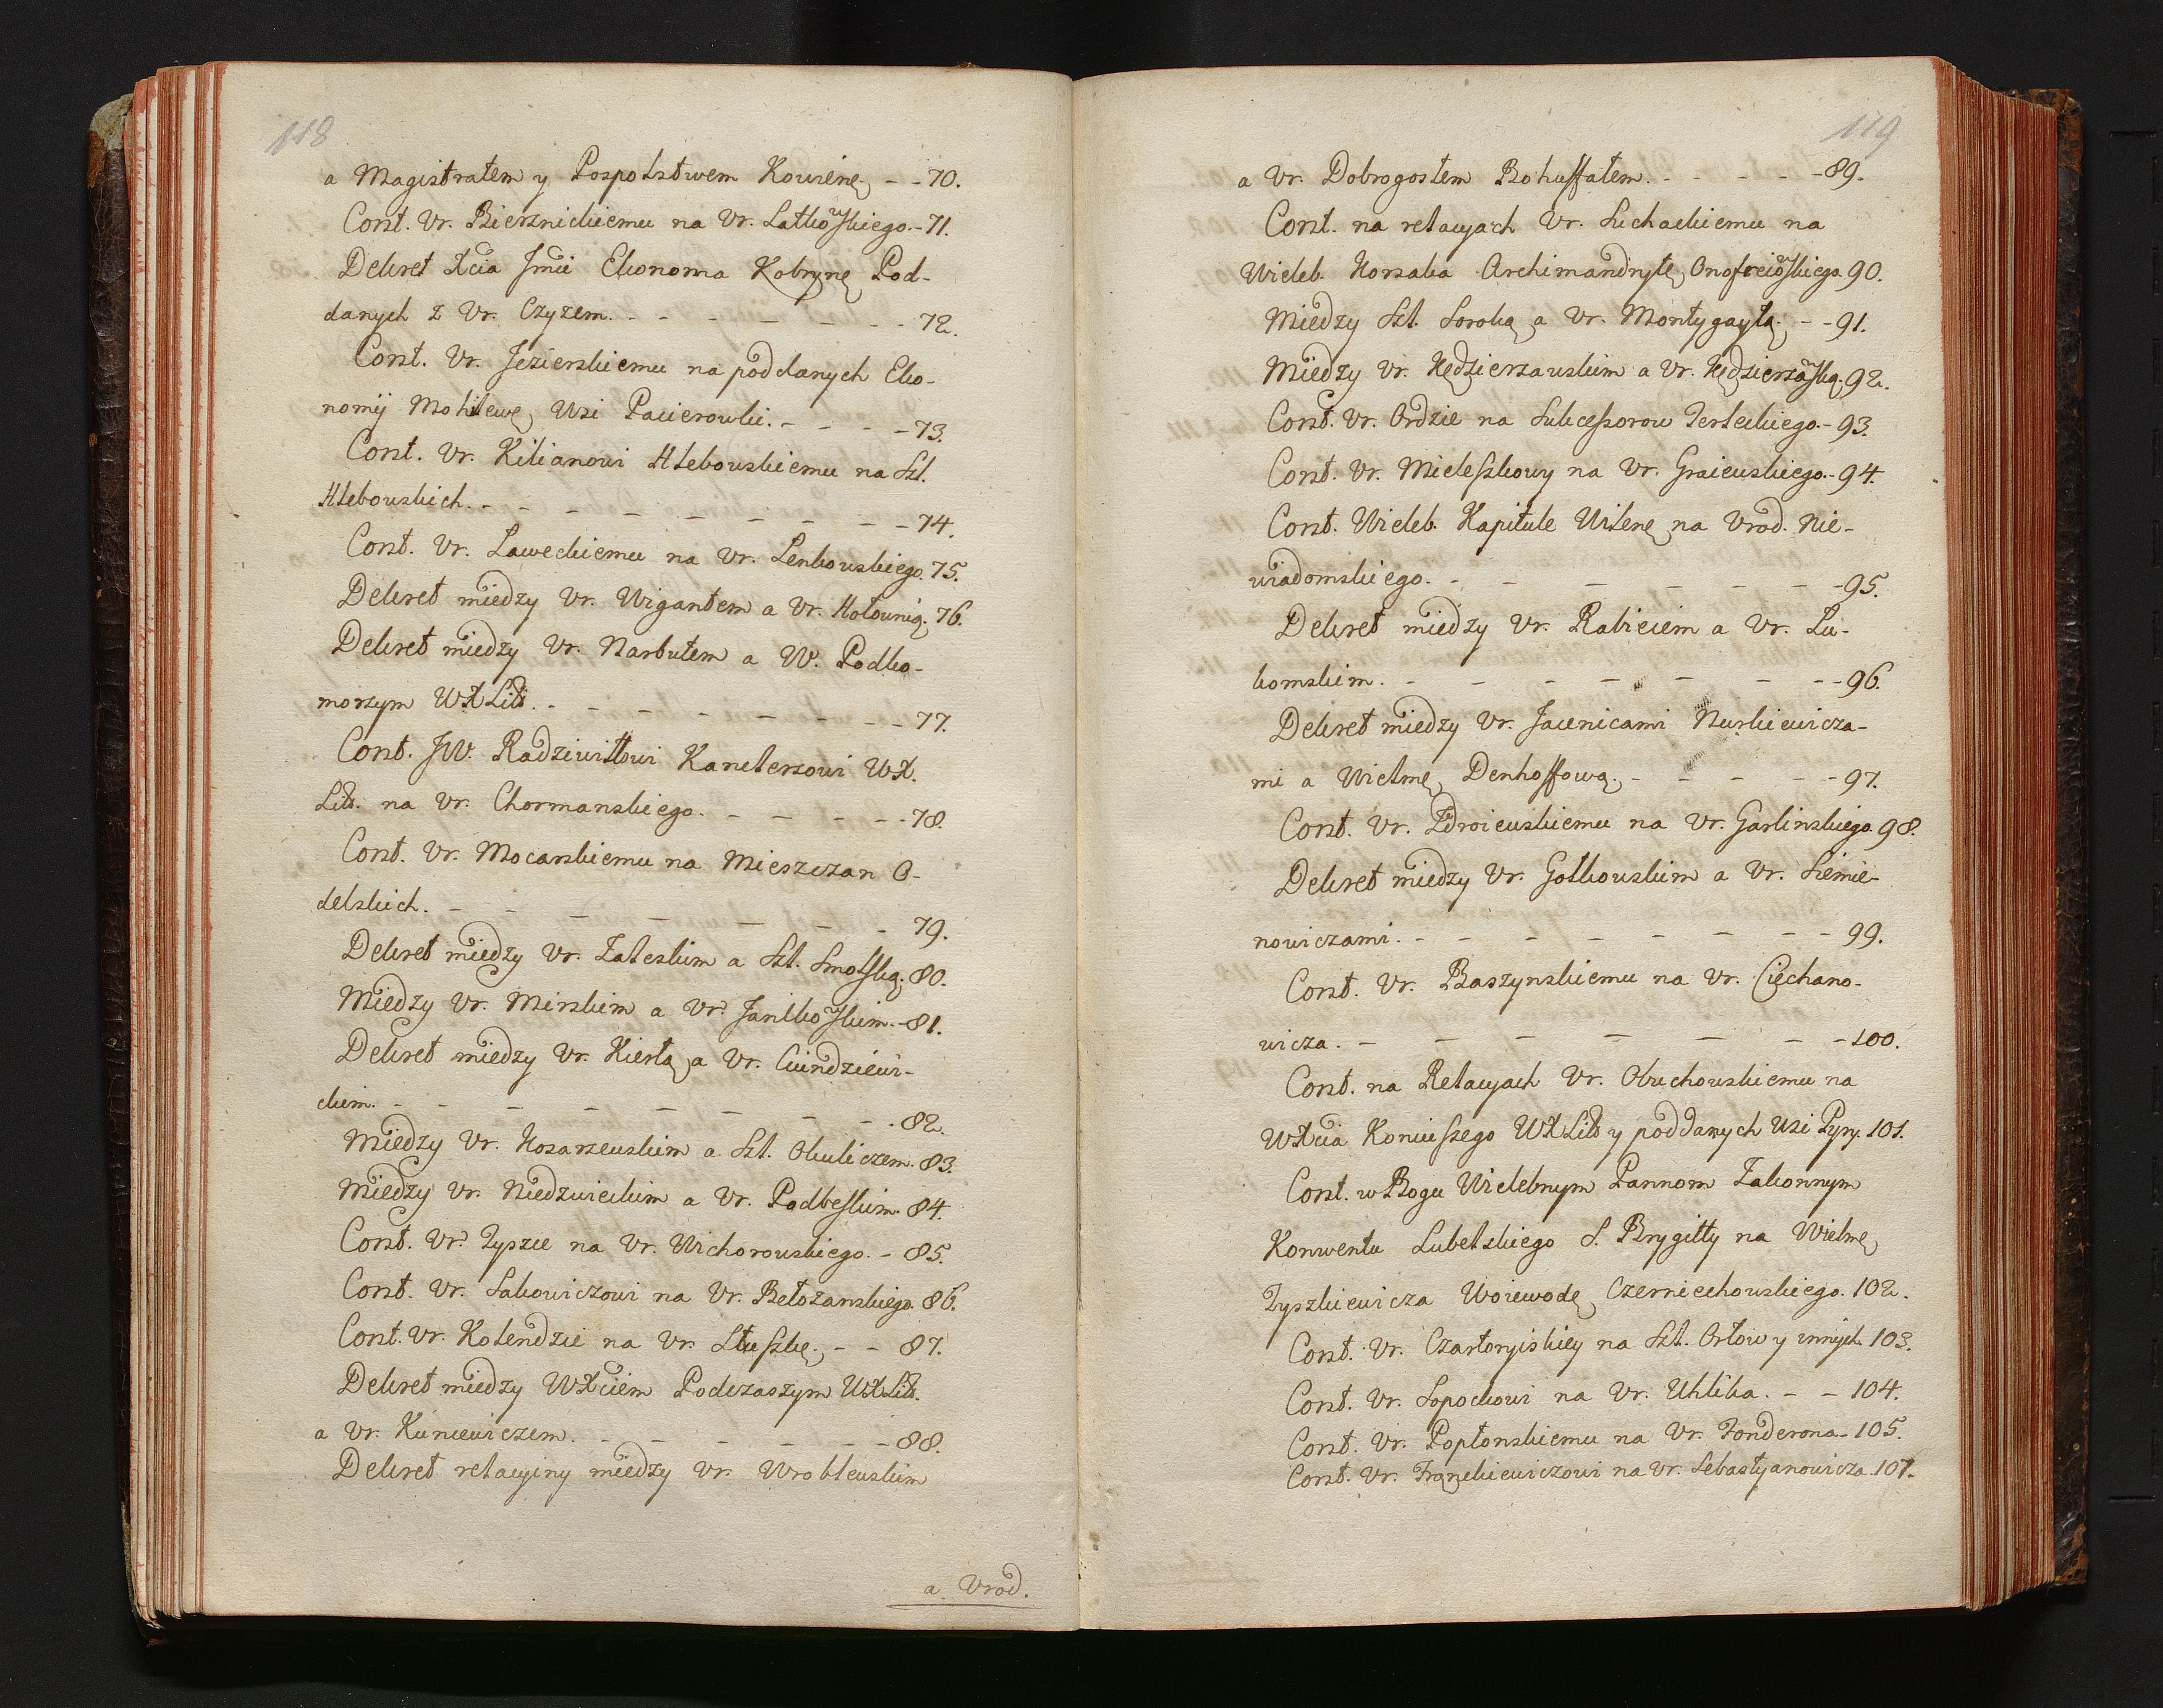 118
a Magistratem y Pospolstwem Kowienę, - - 70.
Const. Vr. Biersznickiemu na Vr. Latkowskiego. - 71.
Dekret Xcia Jmci Ekonoma Kobrynę, Pod-
danych z Vr. Czyzem. - - - - - - 72.
Const. Vr. Jezierskiemu na poddanych Eko-
nomij Mohilewę, Wsi Pacierowki. - - - - 73.
Const. Vr. Kilianowi Hlebowskiemu na Szl.
Hlebowskich. - - - - - - - - 74.
Const. Vr. Laweckiemu na Vr. Lenkowskiego. 75.
Dekret miedzy Vr. Wigantem a Vr. Hołownią. 76.
Dekret miedzy Vr. Narbutem a W. Podko-
morzym WXLitt. - - - - - - - 77.
Const. JW. Radziwiłłowi Kanclerzowi WX.
Litt. na Vr. Chormanskiego. - - - - - 78.
Const. Vr. Mocarskiemu na Mieszczan O-
delskich. - - - - - - - 79.
Dekret miedzy Vr. Zaleskim a Szl. Smolską. 80.
Miedzy Vr. Mirskim a Vr. Janikowskim. - 81.
Dekret miedzy Vr. Kierłą, a Vr. Cundziewi-
ckim. - - - - - - - - 82.
Miedzy Vr. Kosarzewskim a Szl. Okuliczem. 83.
Miedzy Vr. Niedzwieckim a Vr. Podbeskim. 84.
Const. Vr. Zyszce na Vr. Wichorowskiego. - 85.
Const. Vr. Sakowiczowi na Vr. Bełozanskiego. 86.
Const. Vr. Kolendzie na Vr. Słuszkę. - - 87.
Dekret miedzy WXciem Podczaszym WXLitt.
a Vr. Kuncewiczem. - - - - - - 88.
Dekret relacyiny miedzy Vr. Wroblewskim
a Vrod.
119
a Vr. Dobrogostem Bohuffałem. - - - - - 89.
Const. na relacyach Vr. Suchackiemu na
Wieleb. Korsaka Archimandrytę, Onofreiowskiego. 90.
Miedzy Szl. Soroką, a Vr. Montygayłą. - - 91.
Miedzy Vr. Kędzierzawskim a Vr. Kędzierzawską. 92.
Const. Vr. Ordzie na Sukcessorow Terleckiego. - 93.
Const. Vr. Mieleszkowy na Vr. Graiewskiego. - 94.
Const. Wieleb. Kapitule Wilenę, na Vrod. Nie-
wiadomskiego. - - - - - - - 95.
Dekret miedzy Vr. Rabieiem a Vr. Lu-
komskim. - - - - - - - 96.
Dekret miedzy Vr. Jacenicami Nurkiewicza-
mi a Wielmę, Denhoffową. - - - - - 97.
Const. Vr. Zdroiewskiemu na Vr. Garlinskiego. 98.
Dekret miedzy Vr. Gołkowskim a Vr. Siemie-
nowiczami. - - - - - - - - 99.
Const. Vr. Baszynskiemu na Vr. Ciechano-
wicza. - - - - - - - 100.
Const. na Relacyach Vr. Obuchowskiemu na
WXcia Koniuszego WXLitt y poddanych Wsi Pyry. 101.
Const. w Bogu Wielebnym Pannom Zakonnym
Konwentu Lubelskiego S. Brygitty na Wielmę,
Tyszkiewicza Woiewodę, Czerniechowskiego. 102.
Const. Vr. Czartoryiskiey na Szl. Orłow y innych. 103.
Const. Vr. Sopockowi na Vr. Uhlika. - - 104.
Const. Vr. Popłonskiemu na Vr. Fonderona. - 105.
Const. Vr. Franckiewiczowi na Vr. Sebastyanowicza. 107.